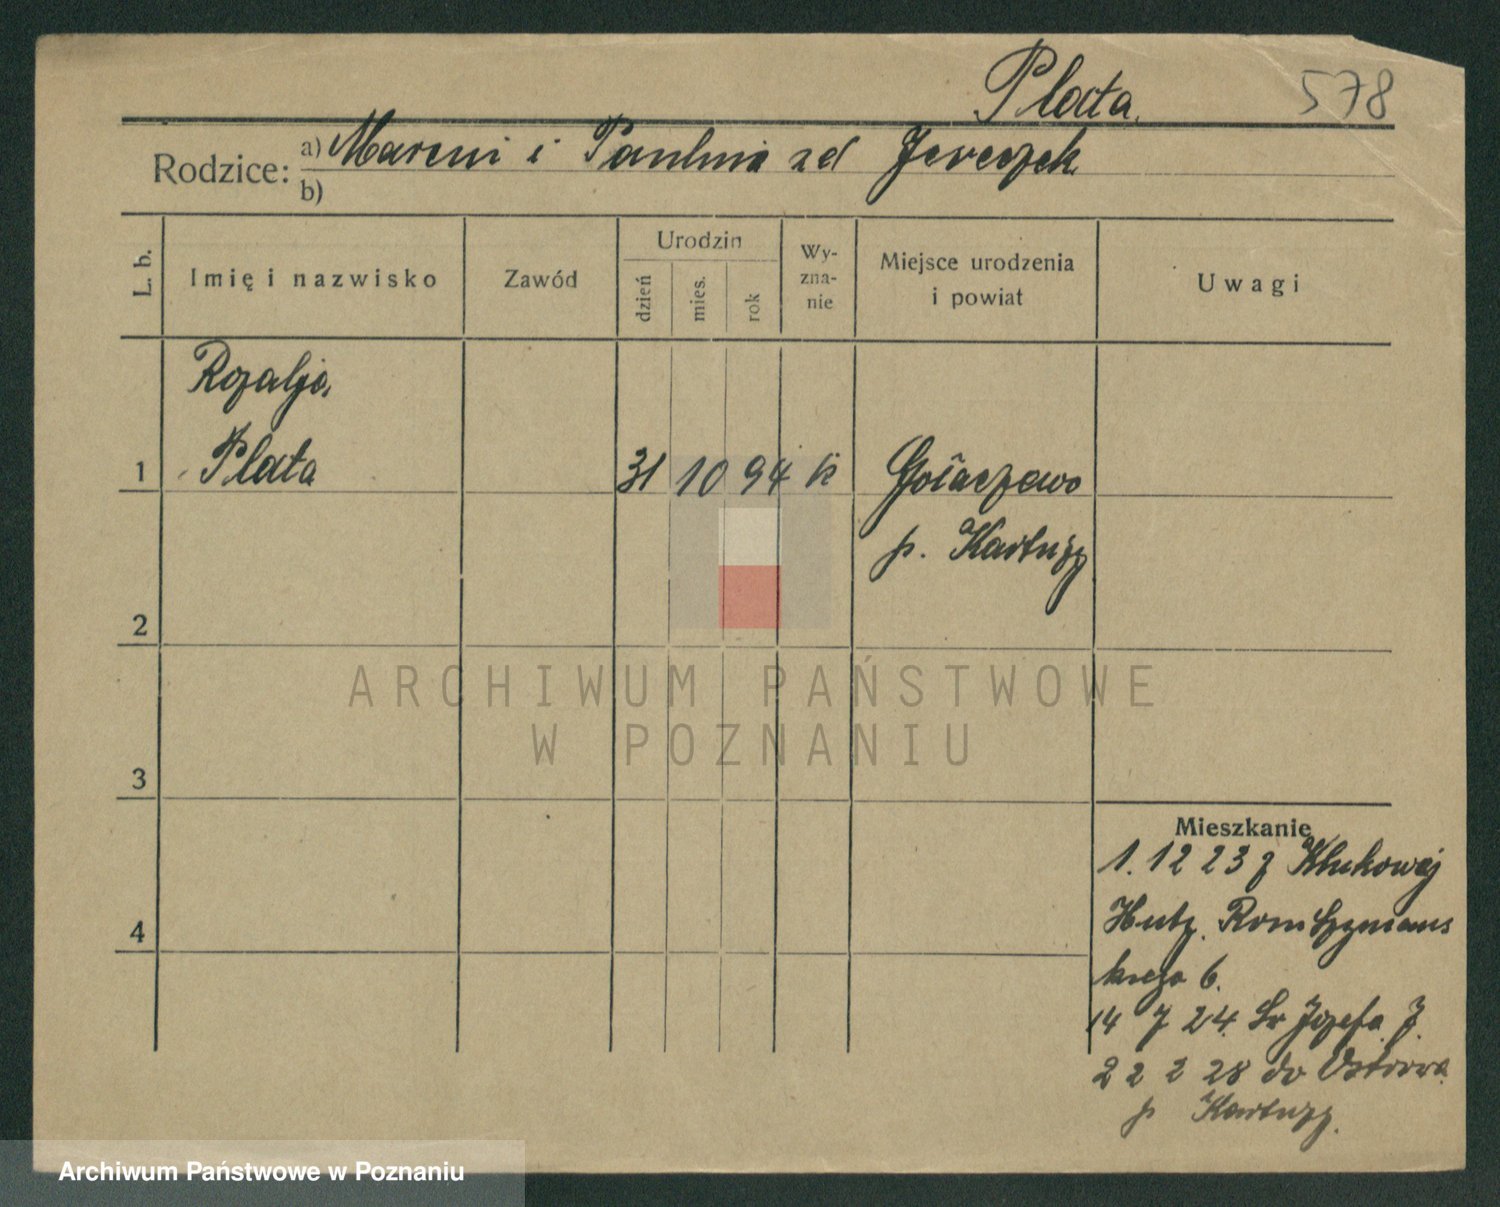 Plata 578
Rodzice: a) Marcin i Paulina zd Jereczek
b)
L. b. Imię i nazwisko Zawód Urodzin dzień mies. rok Wy-zna-nie Miejsce urodzenia i powiat Uwagi
Rozalja
1 Plata 31 10 94 k Gołaczewo
p. Kartuzy
2
3
Mieszkanie
1. 12 23 z Klukowej
4 Huty. Rom Szymans
kiego 6.
14 7 24. Św Józefa 7.
22 2 28 do Ostrowa
p Kartuzy.
ARCHIWUM PAŃSTWOWE
W POZNANIU
Archiwum Państwowe w Poznaniu